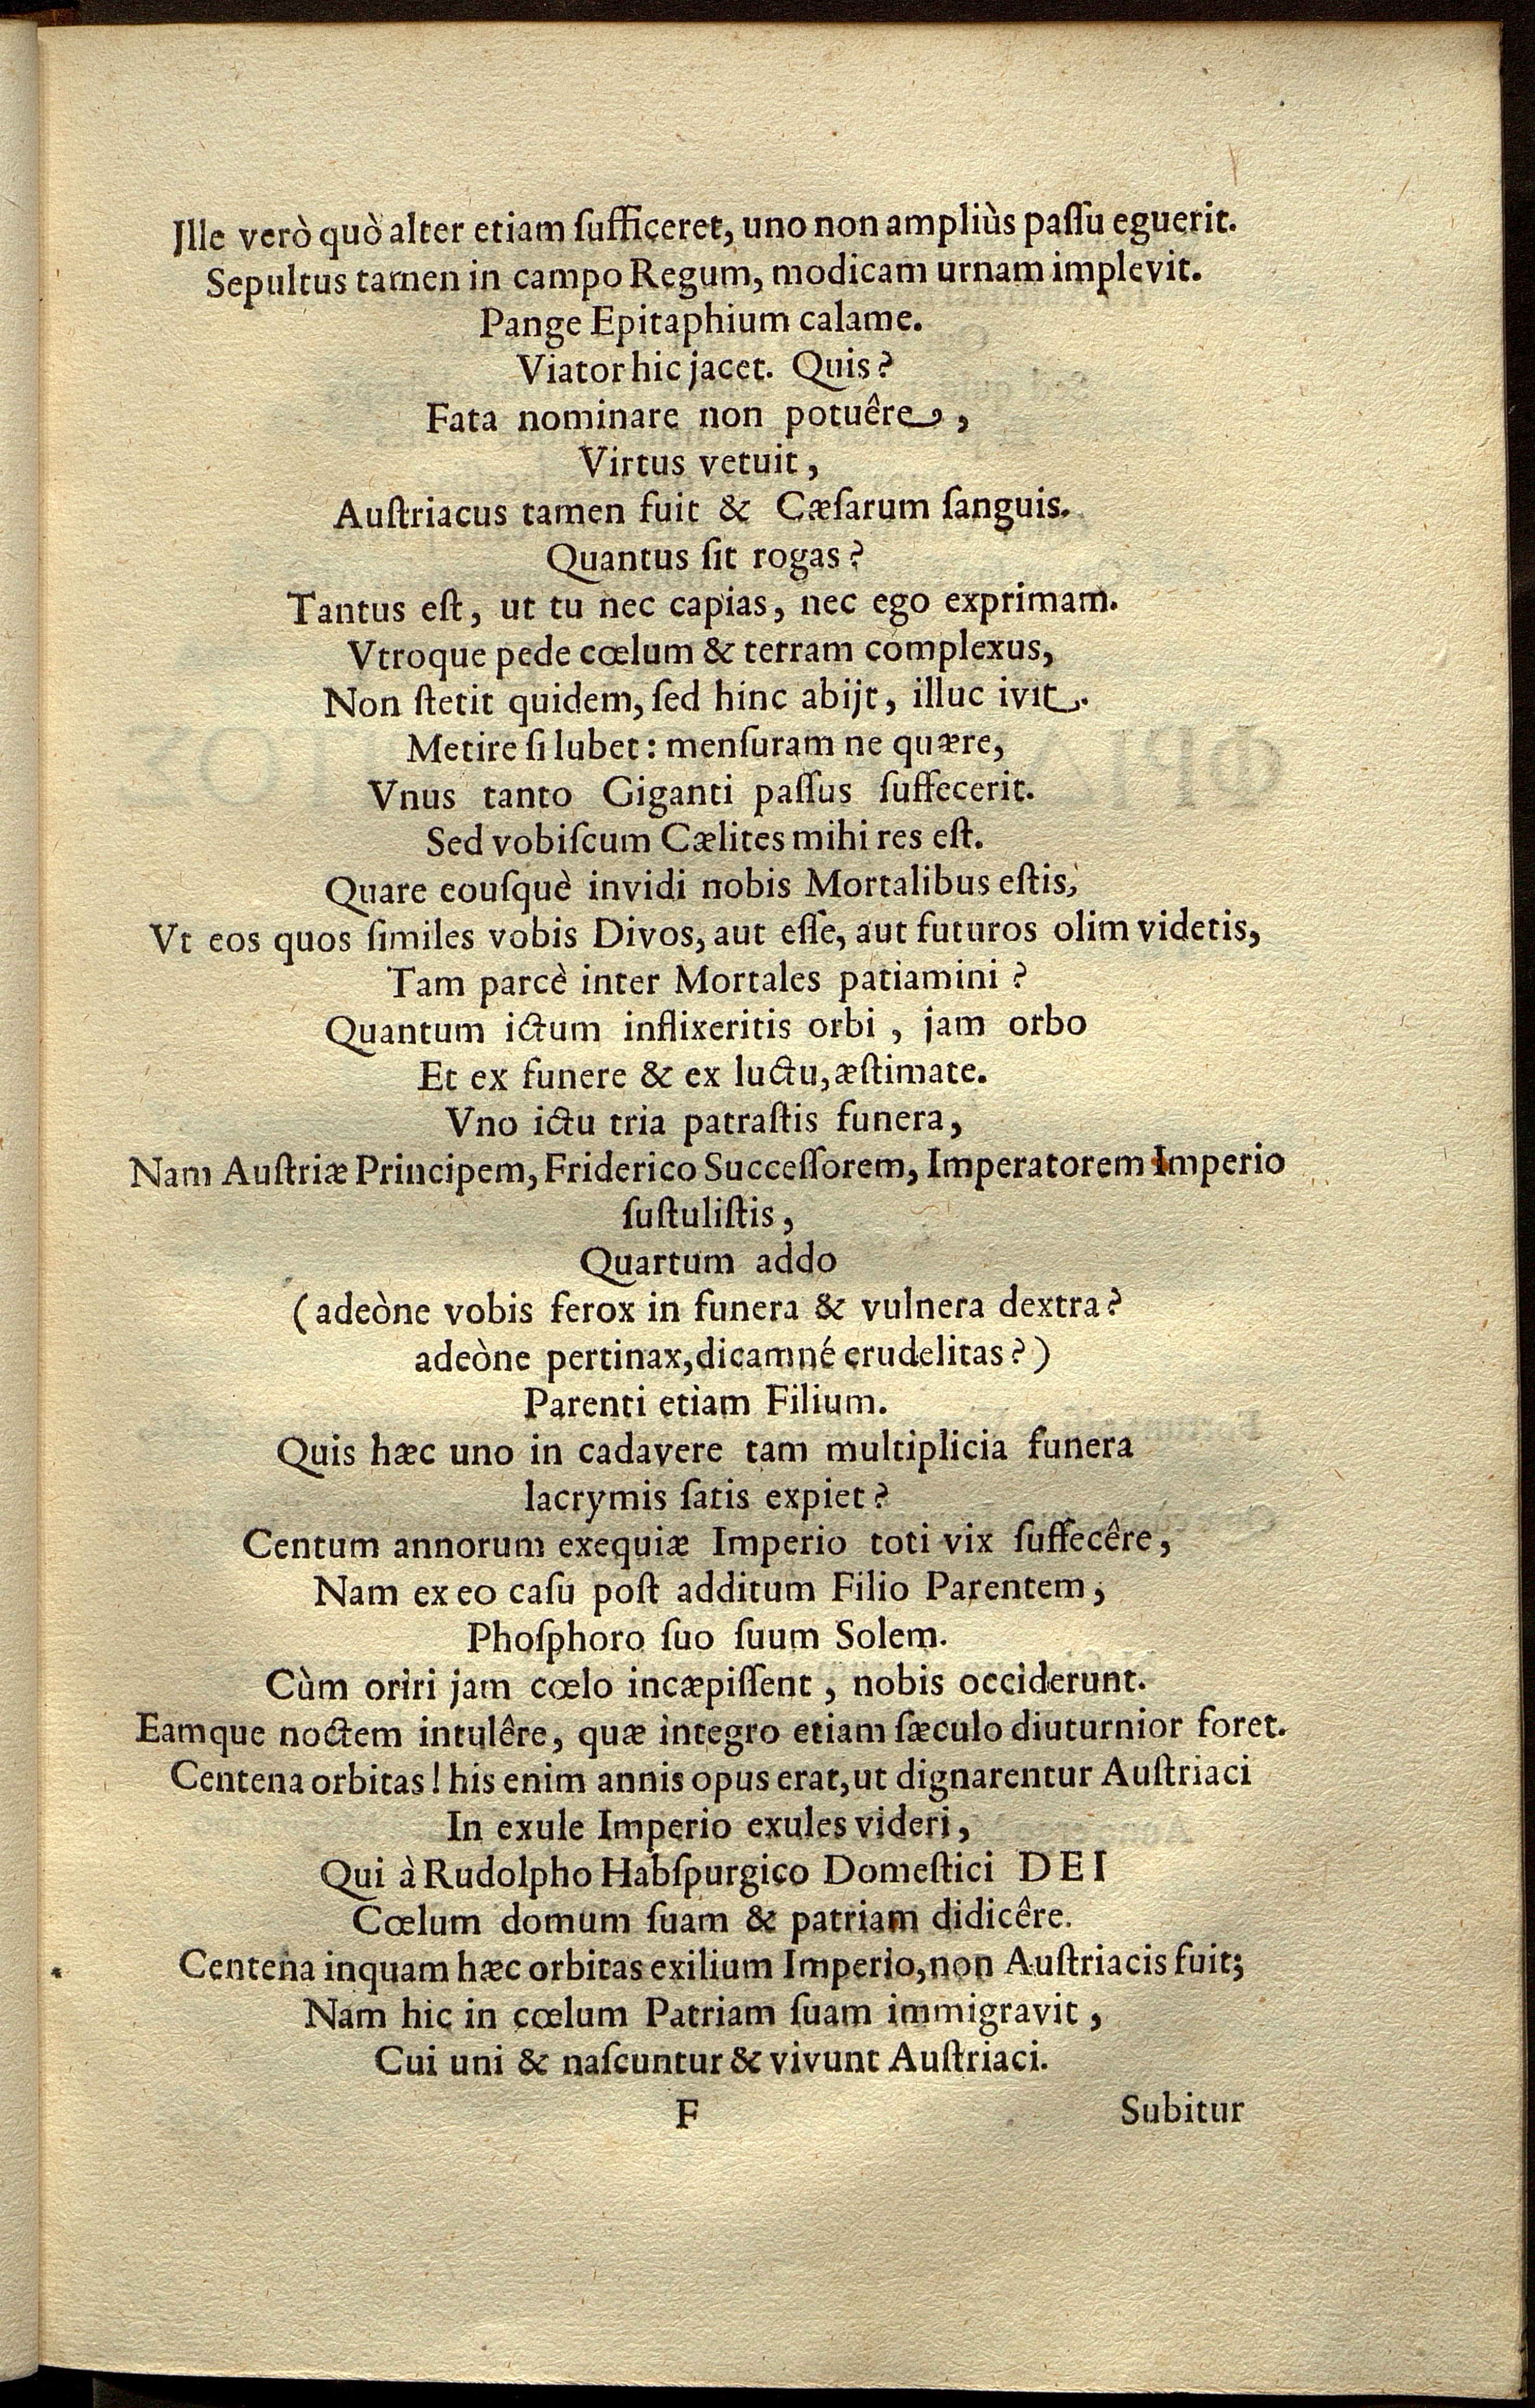 Jlle verò quò alter etiam ſufficeret, uno non ampliùs paſſu eguerit.
Sepultus tamen in campo Regum, modicam urnam implevit.
Pange Epitaphium calame.
Viator hic jacet. Quis?
Fata nominare non potuêre,
Virtus vetuit,
Auſtriacus tamen fuit & Cæſarum ſanguis.
Quantus ſit rogas?
Tantus eſt, ut tu nec capias, nec ego exprimam.
Vtroque pede cœlum & terram complexus,
Non ſtetit quidem, ſed hinc abijt, illuc ivit.
Metire ſi lubet: menſuram ne quære,
Vnus tanto Giganti paſſus ſuffecerit.
Sed vobiſcum Cælites mihi res eſt.
Quare eouſquè invidi nobis Mortalibus eſtis,
Vt eos quos ſimiles vobis Divos, aut eſſe, aut futuros olim videtis,
Tam parcè inter Mortales patiamini?
Quantum ictum inflixeritis orbi, jam orbo
Et ex funere & ex luctu, æſtimate.
Vno ictu tria patraſtis funera,
Nam Auſtriæ Principem, Friderico Succeſſorem, Imperatorem Imperio
ſuſtuliſtis,
Quartum addo
(adeòne vobis ferox in funera & vulnera dextra?
adeòne pertinax, dicamné crudelitas?)
Parenti etiam Filium.
Quis hæc uno in cadavere tam multiplicia funera
lacrymis ſatis expiet?
Centum annorum exequiæ Imperio toti vix ſuffecêre,
Nam ex eo caſu poſt additum Filio Parentem,
Phoſphoro ſuo ſuum Solem.
Cùm oriri jam cœlo incæpiſſent, nobis occiderunt.
Eamque noctem intulêre, quæ integro etiam ſæculo diuturnior foret.
Centena orbitas! his enim annis opus erat, ut dignarentur Auſtriaci
In exule Imperio exules videri,
Qui à Rudolpho Habſpurgico Domeſtici DEI
Cœlum domum ſuam & patriam didicêre.
Centena inquam hæc orbitas exilium Imperio, non Auſtriacis fuit;
Nam hic in cœlum Patriam ſuam immigravit,
Cui uni & naſcuntur & vivunt Auſtriaci.
F Subitur